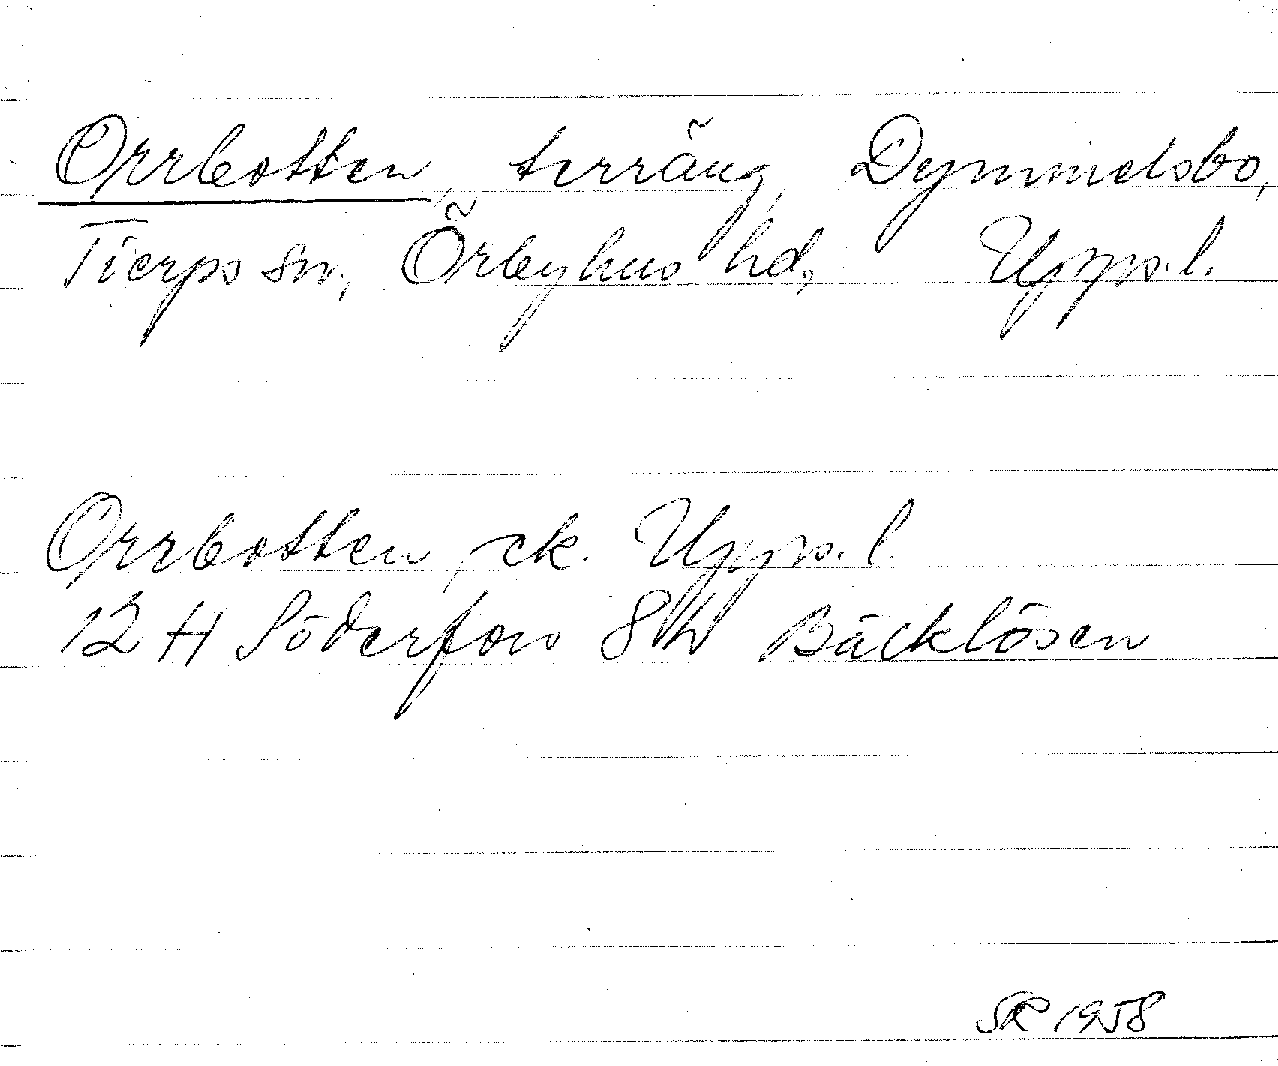 Orrbotten, terräng, Dymmelsbo,
Tierps sn, Örbyhus hd, Upps.l.
Orrbotten, ek. Upps. l.
12 H Söderfors 8h Bäcklösen
SR 1958